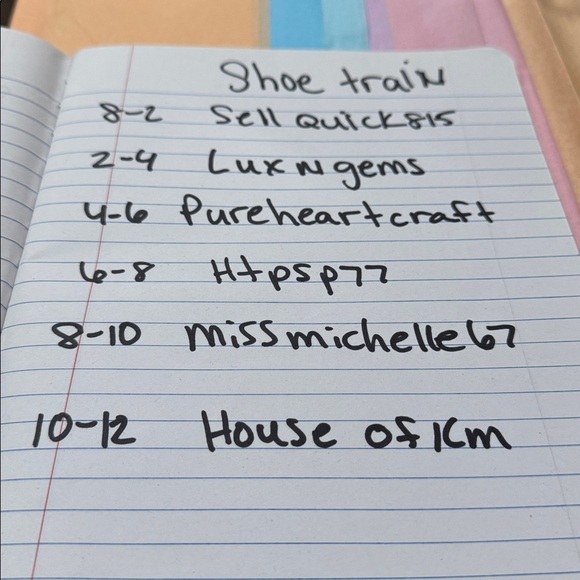 Shoe traiN
8-2 Sell Quick815
2-4 Lux N gems
4-6 Pureheartcraft
6-8 Htpsp77
8-10 missmichelle67
10-12 House of Km